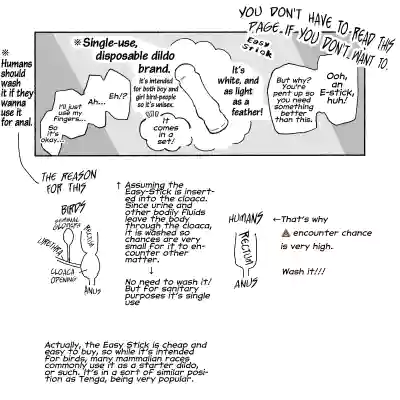 YOU DON'T HAVE TO READ THIS
PAGE. IF YOU DON'T WANT TO.
Easy
Stick
※Single-use,
disposable dildo
brand.
it's intended
for both boy and
girl bird-people
so it's unisex.
It's
white, and
as light
as a
feather!
It
comes in
a set!
Ooh,
an
E-stick,
huh!
But why?
You're
pent up so
you need
something
better
than this.
Eh!?
Ah...
I'll just
use my
fingers...
So
it's
okay...
※
Humans
should
wash
it if they
wanna
use it
for anal.
THE REASON
FOR THIS
BIRDS
RECTUM
URETHRA
CLOACA
OPENING
ANUS
↑ Assuming the
Easy-Stick is insert-
ed into the cloaca.
Since urine and
other bodily fluids
leave the body
through the cloaca,
it is washed so
chances are very
small for it to en-
counter other
matter.
↓
No need to wash it!
But for sanitary
purposes it's single
use
HUMANS
RECTUM
ANUS
←That's why
encounter chance
is very high.
Wash it!!!
Actually, the Easy Stick is cheap and
easy to buy, so while it's intended
for birds, many mammalian races
commonly use it as a starter dildo,
or such. It's in a sort of similar posi-
tion as Tenga, being very popular.